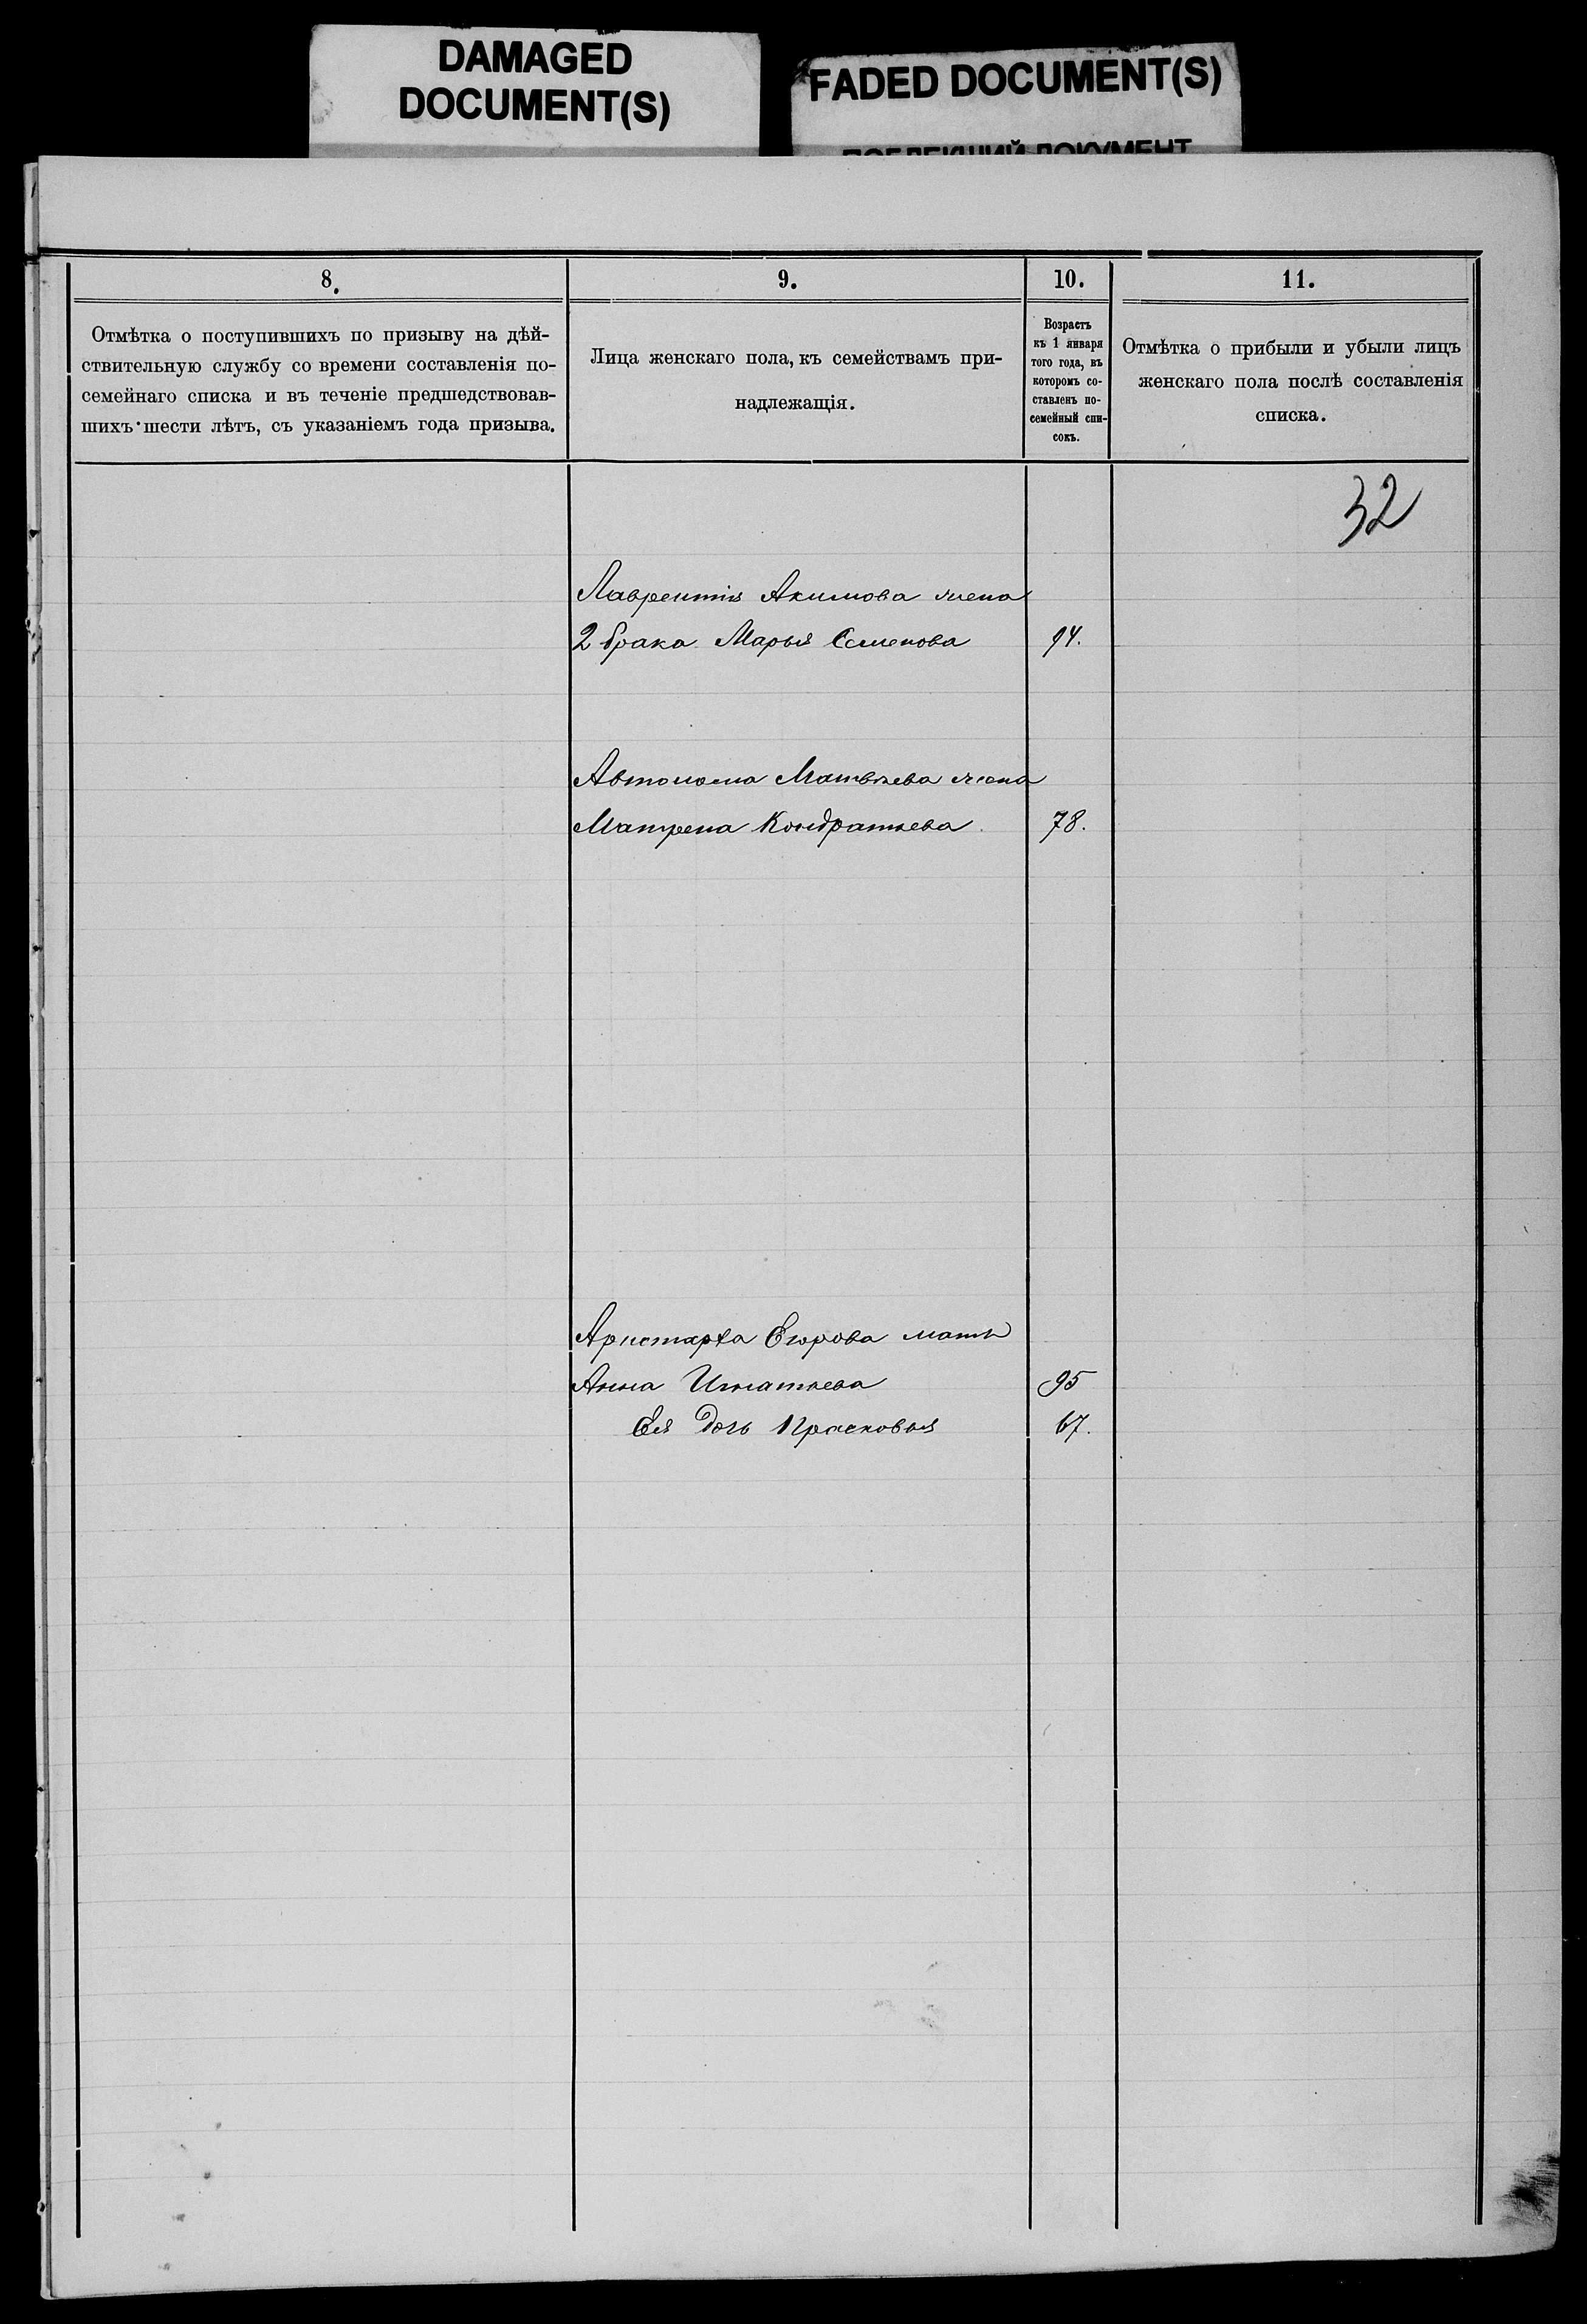 DAMAGED
DOCUMENT(S)
FADED DOCUMENT(S)
ПОБЛЕКШИЙ ДОКУМЕНТ
8.
9.
10.
11.
Отмѣтка о поступившихъ по призыву на дѣй-
ствительную службу со времени составленія по-
семейнаго списка и въ теченіе предшедствовав-
шихъ шести лѣтъ, съ указаніемъ года призыва.
Лица женскаго пола, къ семействамъ при-
надлежащія.
Возрастъ
къ 1 января
того года, въ
которомъ со-
ставленъ по-
семейный спи-
сокъ.
Отмѣтка о прибыли и убыли лицъ
женскаго пола послѣ составленія
списка.
32
Лаврентія Акимова жена
2 брака Марья Семенова 94.
Автонома Матвѣева жена
Матрена Кондратьева 78.
Аристарха Егорова мать
Анна Игнатьева 95
Ея дочь Прасковья 67.